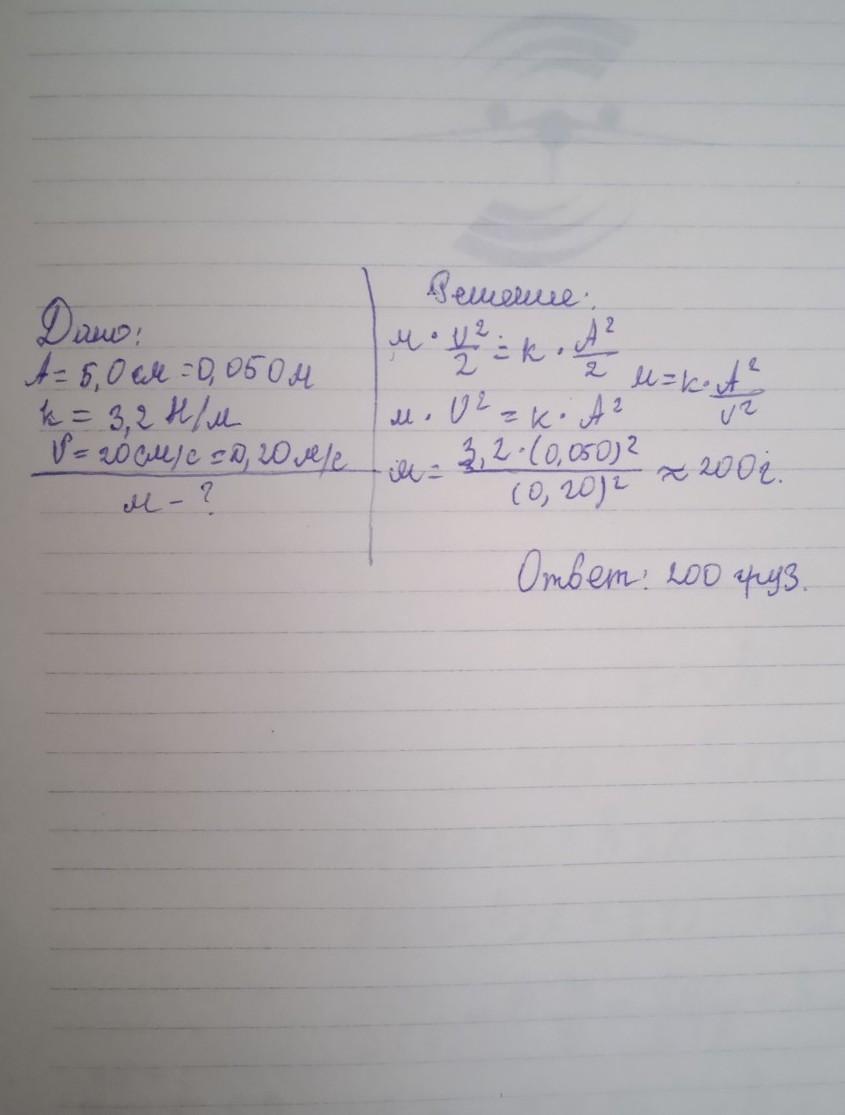 Дано:
A = 5,0 см = 0,050 м
k = 3,2 Н/м
v = 20 см/с = 0,20 м/с
м - ?
Решение:
м · v²/2 = k · A²/2
м = k · A²/v²
м · v² = k · A²
м = 3,2 · (0,050)²/(0,20)² ≈ 200г.
Ответ: 200 груз.